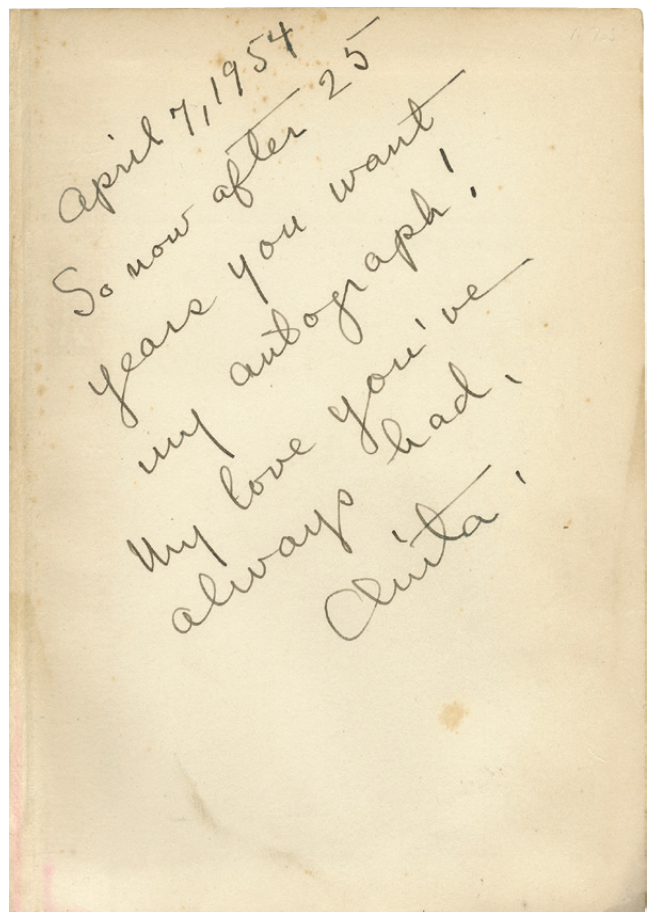 April 7, 1954
So now after 25
years you want
my autograph!
My love you've
always had.
Anita.